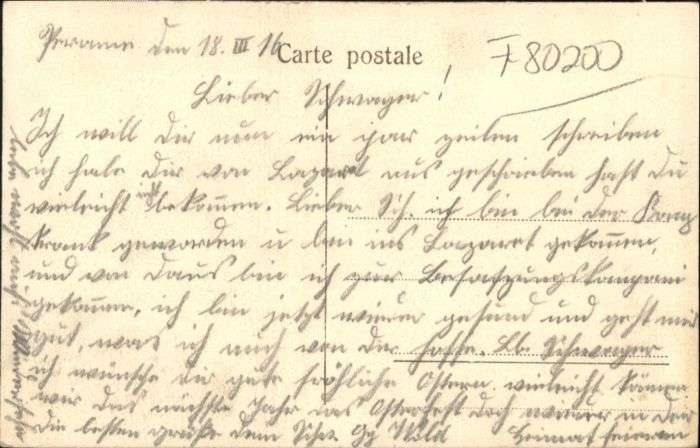 Peronne den 18. III 16
Carte postale
F 80200
Lieber Schwager!
Ich will Dir nun ein par zeilen schreiben
ich habe Dir von Lazaret aus geschrieben hast Du
vieleicht nicht bekommen. Lieber Sch. ich bin bei der Komp
krank geworden u bin ins Lazaret gekommen,
und von Daus bin ich zur Besatzungskompani
gekommen, ich bin jetzt wieder gesund und geht mir
gut, was ich auch von Dir hoffe. Lb. Schwager
ich wünsche Dir gute fröhliche Ostern. vieleicht können
wir das nächste Jahr das Osterfest doch wieder in der
Heimat feieren
Die besten grüße dein Schw. Gg Wild